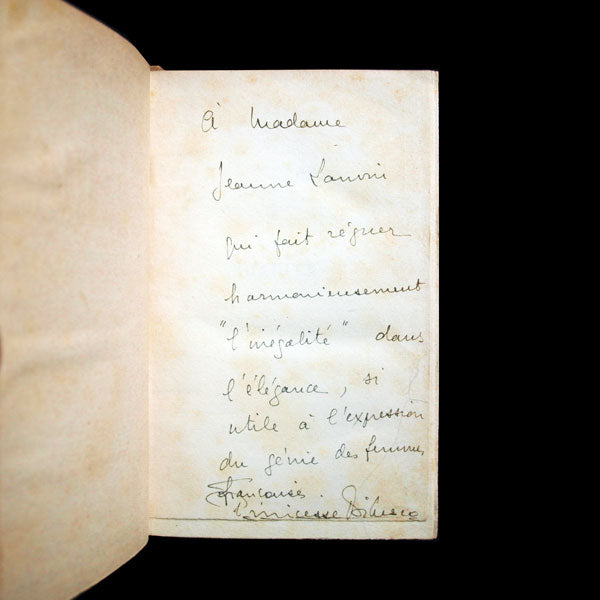 À Madame
Jeanne Lanvin
qui fait régner
harmonieusement
"l'inégalité" dans
l'élégance, si
utile à l'expression
du génie des femmes
françaises.
Princesse Bibesco